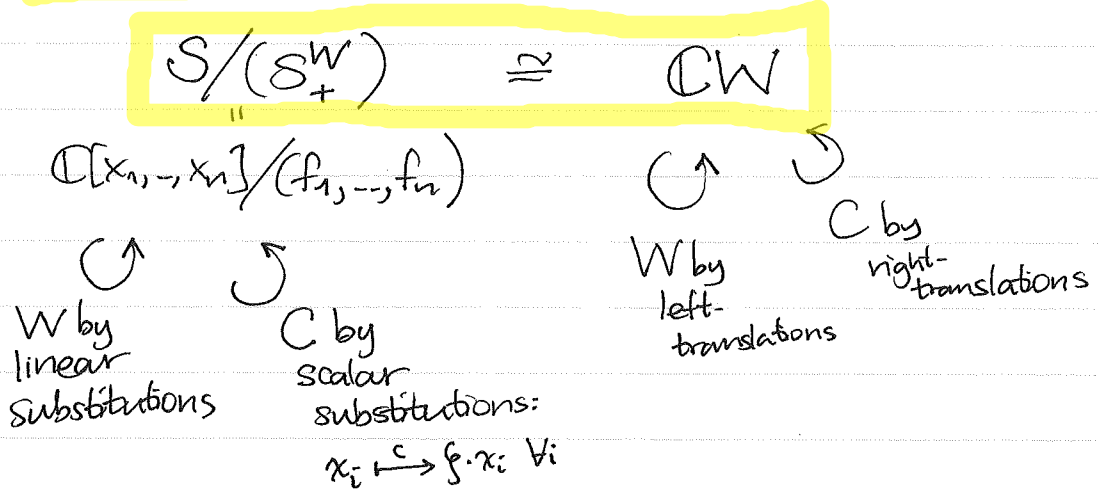 S/(S₊ᵂ) ≅ ℂW
"
ℂ[x₁,-,xₙ]/(f₁,--,fₙ)
W by linear substitutions
C by scalar substitutions:
xᵢ ↦ᶜ ζ·xᵢ ∀i
W by left-translations
C by right-translations